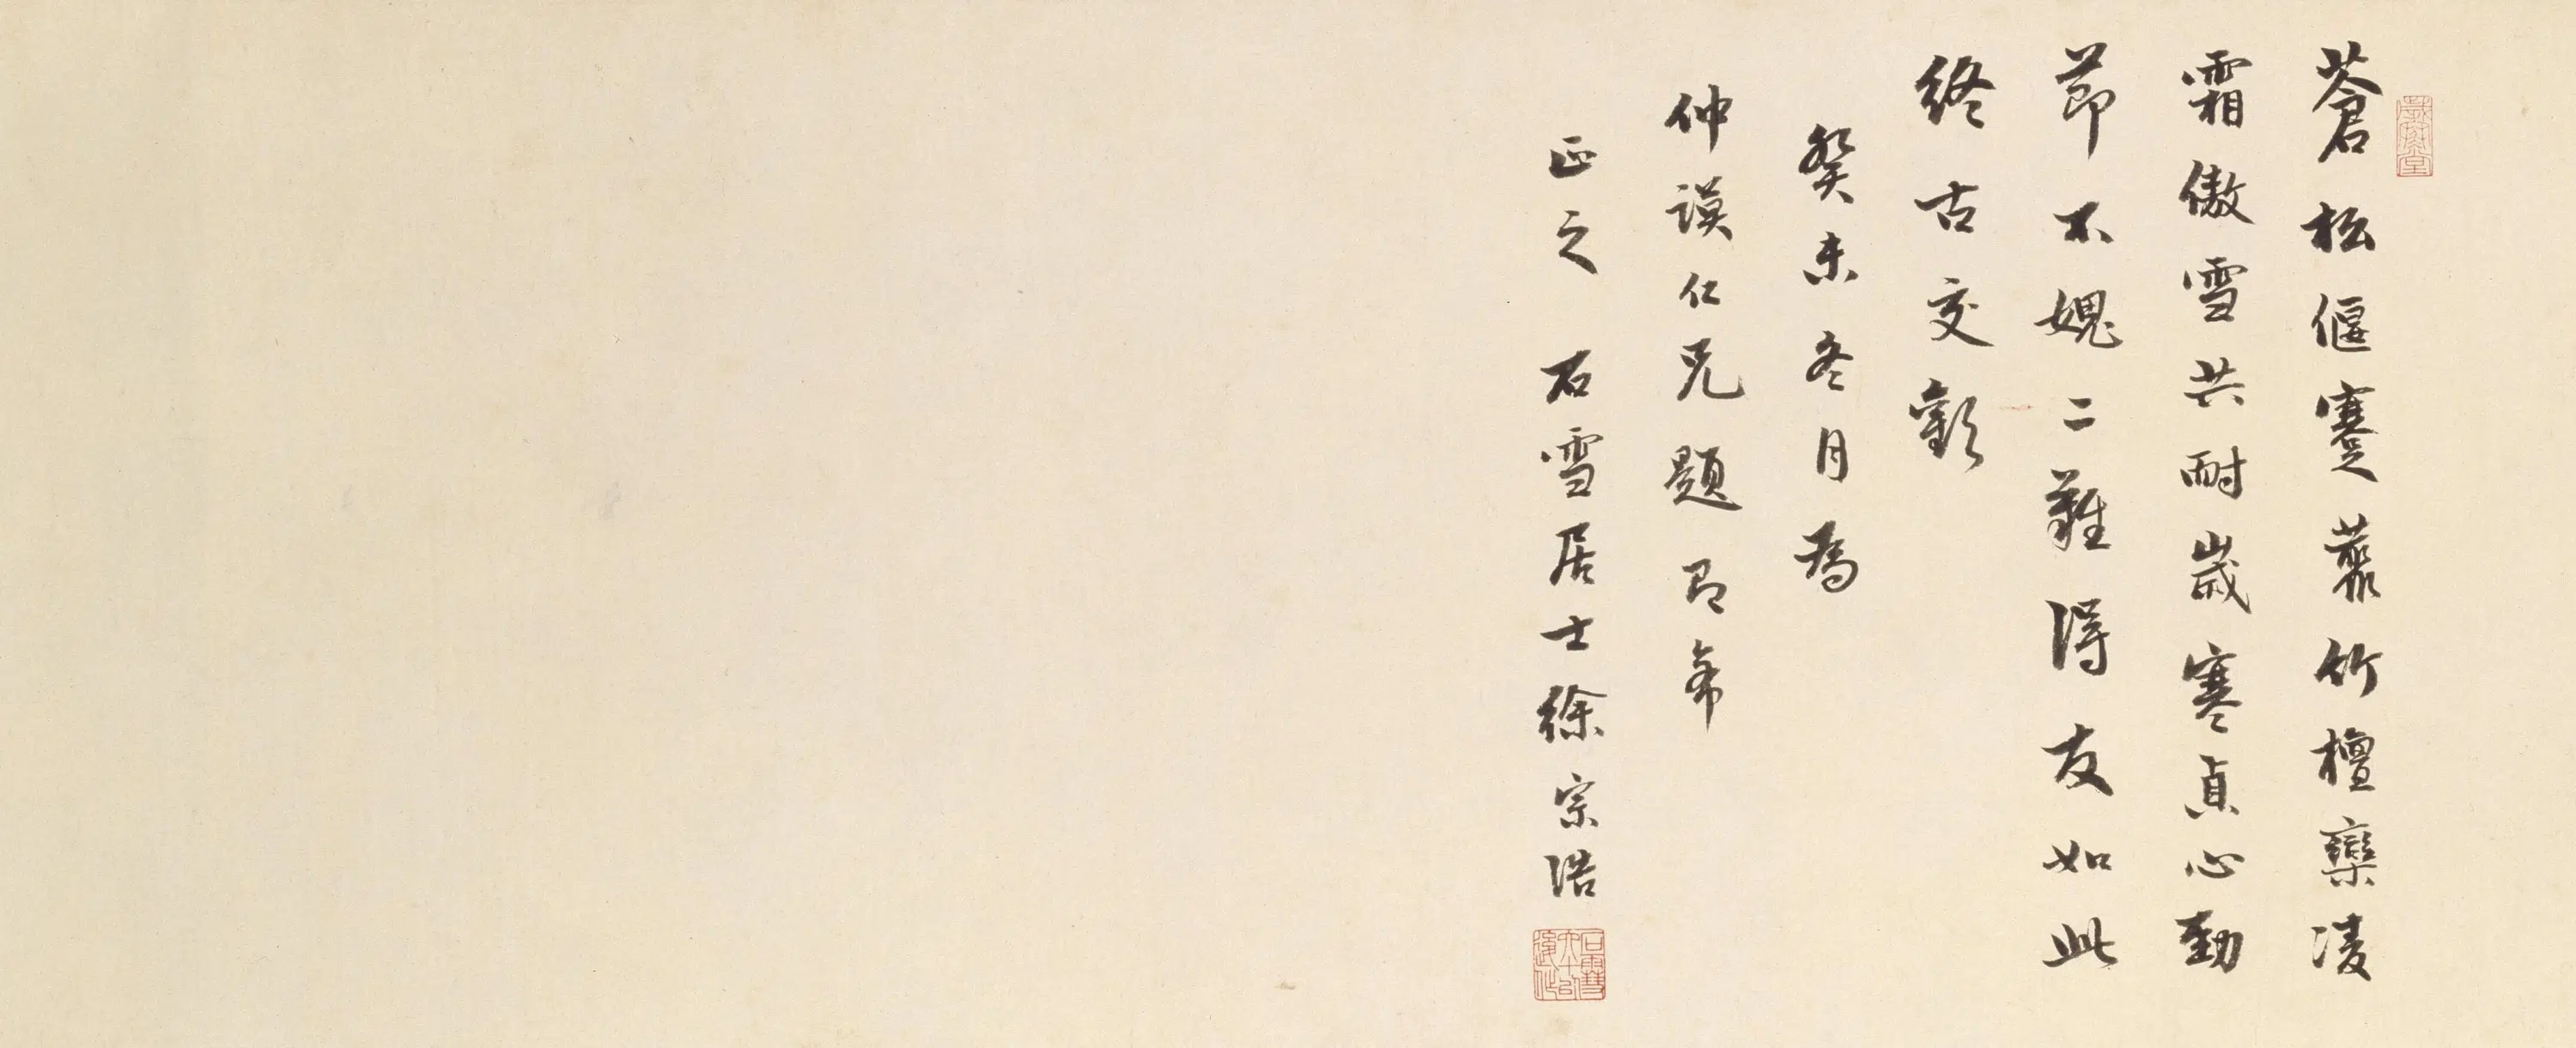 蒼松偃蹇叢竹檀欒凌
霜傲雪共耐歲寒貞心勁
節不媿二難得友如此
終古交歡
癸未冬月為
仲謨仁兄題即希
正之 石雪居士徐宗浩